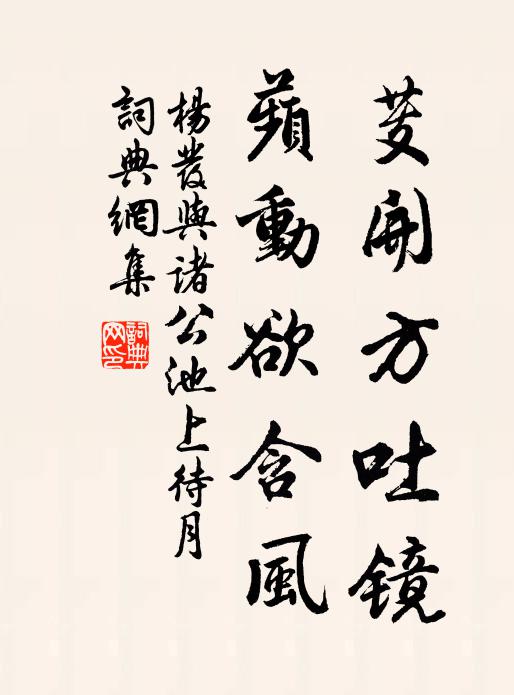 芰開方吐鏡
蘋動欲含風
楊發與諸公池上待月
詞典網集
詞典网印